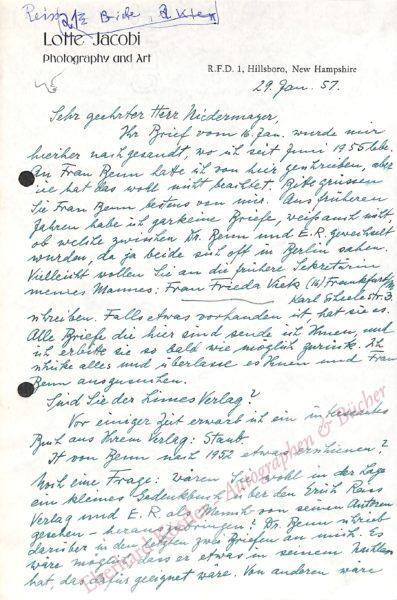 Reiss 2½ Briefe, 2 Karten
Lotte Jacobi
Photography and Art
R.F.D. 1, Hillsboro, New Hampshire
29. Jan. 57.
Sehr geehrter Herr Niedermayer,
Ihr Brief vom 16. Jan. wurde mir
hierher nachgesandt, wo ich seit Juni 1955 lebe.
An Frau Benn hatte ich von hier geschrieben, aber
sie hat das wohl nicht beachtet. Bitte grüssen
Sie Frau Benn bestens von mir. Aus früheren
Jahren habe ich garkeine Briefe, weiß auch nicht,
ob welche zwischen Dr. Benn und E.R. gewechselt
wurden, da ja beide sich oft in Berlin sahen.
Vielleicht wollen Sie an die frühere Sekretärin
meines Mannes: Frau Frieda Vieth (16) Frankfurt/M
Karl Scheelestr. 3
schreiben. Falls etwas vorhanden ist hat sie es.
Alle Briefe die hier sind sende ich Ihnen, und
ich erbitte sie so bald wie möglich zurück. Ich
schicke alles und überlasse es Ihnen und Frau
Benn auszusuchen.
Sind Sie der Limes Verlag?
Vor einiger Zeit erwarb ich ein interessantes
Buch aus Ihrem Verlag: Staub.
Ist von Benn nach 1952 etwas erschienen?
Noch eine Frage: wären Sie wohl in der Lage
ein kleines Gedenkbuch über den Erich Reiss
Verlag und E.R. als Mensch von seinen Autoren
gesehen - herauszubringen? Dr. Benn schrieb
darüber in den letzten zwei Briefen an mich. Es
wäre möglich dass er etwas in seinem Nachlass
hat, das dafür geeignet wäre. Von anderen wäre
Eberhard Köstler Autographen & Bücher